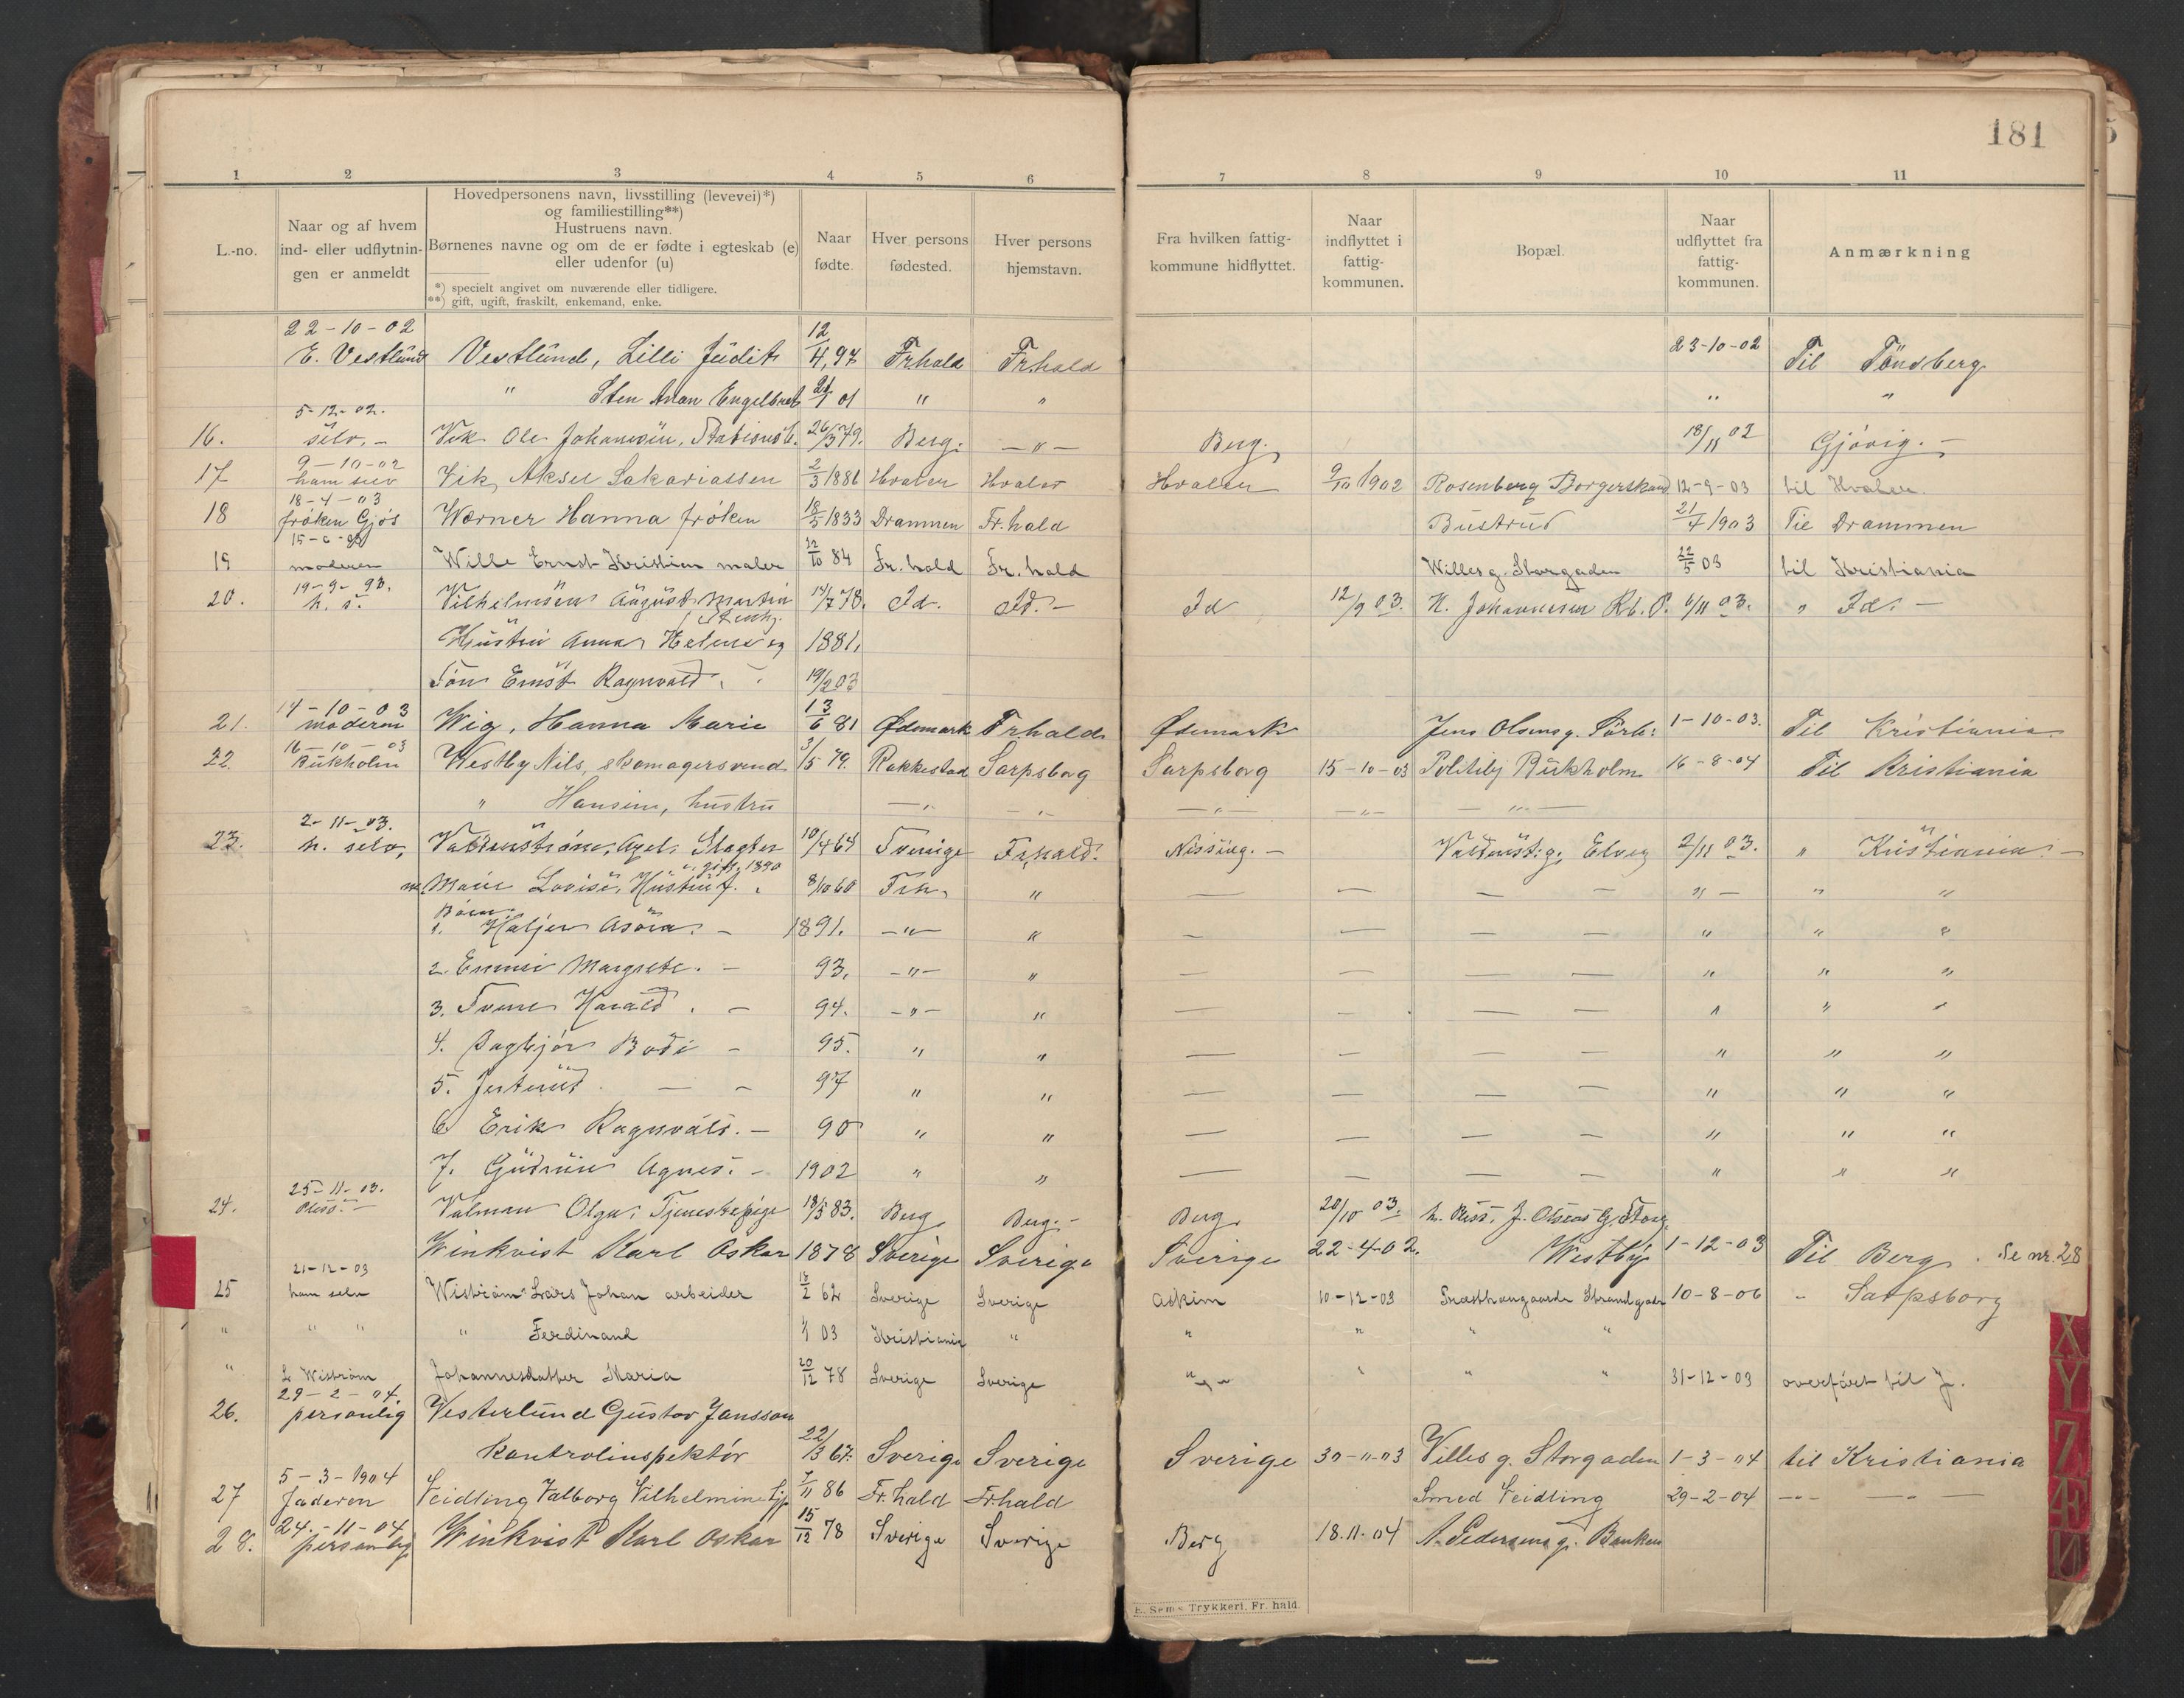 181
1 2 3 4 5 6 7 8 9 10 11
L.-no.
Naar og af hvem
ind- eller udflytnin-
gen er anmeldt
Hovedpersonens navn, livsstilling (levevei)*)
og familiestilling**)
Hustruens navn.
Børnenes navne og om de er fødte i egteskab (e)
eller udenfor (u)
*) specielt angivet om nuværende eller tidligere.
**) gift, ugift, fraskilt, enkemand, enke.
Naar
fødte.
Hver persons
fødested.
Hver persons
hjemstavn.
Fra hvilken fattig-
kommune hidflyttet.
Naar
indflyttet i
fattig-
kommunen.
Bopæl.
Naar
udflyttet fra
fattig-
kommunen.
Anmærkning
22-10-02
E. Vestlund Vestlund, Lilli Judit 12/4, 97 Frhald Frhald 23-10-02 Til Tønsberg
" Sten Engelbret 01 " " " "
5-12-02.
16. selv. - Vik Ole Johansen, 26/3 79. Berg. - " - Berg. 18/11 02 Gjøvig. -
9-10-02
17 ham selv Vik, Aksel Sakariassen 2/3 1881 Hvaler Hvaler Hvaler 9/10 1902 Rosenberg Borgerskand 12-9-03 til Hvaler
18-4-03
18 frøken Gjøs Wærner Hanna frøken 18/5 1833 Drammen Fr.hald Bustrud 21/4 1903 Til Drammen
19 moderen Wille Ernst Kristian maler 22/10 84 Fr.hald Fr.hald Willes g. Storgaden 22/5 03 til Kristiania
20. h. s. Vilhelmsen August Martin 14/7 78. Id. Id. - Id 12/9 03. N. Johannesen Kb. P. 6/11 03. " Id. -
Hustru Anna Helene og 1881.
Søn Ernst Ragnvald. 19/2 03
14-10-03
21. moderen Wig, Hanna Marie 13/6 81 Ødemark Frhald Ødemark Jens Olsens g. 1-10-03. Til Kristiania
16-10-03
22. Bukholm Westby Nils, skomagersvend 3/5 79. Rakkestad Sarpsborg Sarpsborg 15-10-03 Politibj Bukholm 16-8-04 Til Kristiania
" Hansine, hustru - " - - " - - " - - " - - " -
2-11-03.
23. h. selv, Valdenstrøm, Axel, Slagter 10/4 64 Sverige Frhald. Valdenst. g. 2/11 03. " Kristiania. -
gift 1890
Marie Lovise, Hustru f. 8/10 60 Frh. " " - " "
Børn
1. - 1891. - " - " " " "
2. Emmi Margrete. - 93. - " - " " " "
3. Harald. - 94. - " - " " " "
4. Dagbjør Bodi - 95. " " " " "
5. Jertrud. - - 97 " " " " "
6. Erik Ragnvald. - 90 " " " " "
7. Gudrun Agnes. - 1902 " " " " "
25-11-03.
24. Valman Olga, Tjenestepige 18/5 83. Berg Berg. - Berg 20/10 03. J. Olsens G. Storg.
Winkvist Karl Oskar 1878 Sverige Sverige Sverige 22-4-02. Westby 1-12-03 Til Berg. Se nr. 28
21-12-03
25 ham selv Wistrøm Lars Johan arbeider 62 Sverige Sverige Askim 10-12-03 Præsthaugaarden Strandgaden 10-8-06 " Sarpsborg
" " " " Ferdinand 1/1 03 Kristiania " " " " "
" L Wistrøm Johannesdatter Maria 20/12 78 Sverige Sverige " " " " 31-12-03 overført til J.
29-2-04.
26. personlig Vesterlund Gustav Jansson
Kontrolinspektør 22/3 67. Sverige Sverige Sverige 30-11-03 Villes g. Storgaden 1-3-04 til Kristiania
5-3-1904
27 faderen Veidling Valborg Vilhelmine tjp 7/11 86 Fr.hald Fr.hald Smed Veidling 29-2-04 - " - - " -
24.-11-04
28. personlig Winkvist Karl Oskar 15/12 78 Sverige Sverige Berg 18.11.04 A. Pedersens g. Banken
E. Sem's Trykkeri, Fr. hald.
XYZÆØ